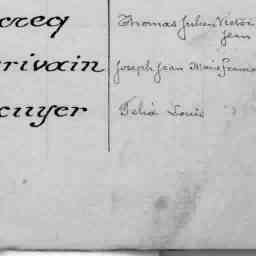 creq Thomas Julien Victor
Jean
rivain Joseph Jean Marie Francois
cuyer Félix Louis